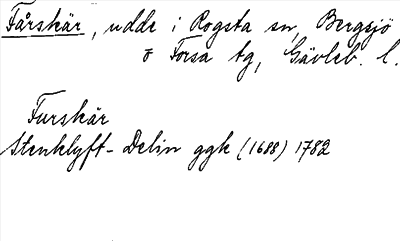 Fårskär, udde i Rogsta sn, Bergsjö
o Forsa tg, Gävleb. l.
Furskär
Stenklyft-Delin ggk (1688) 1782